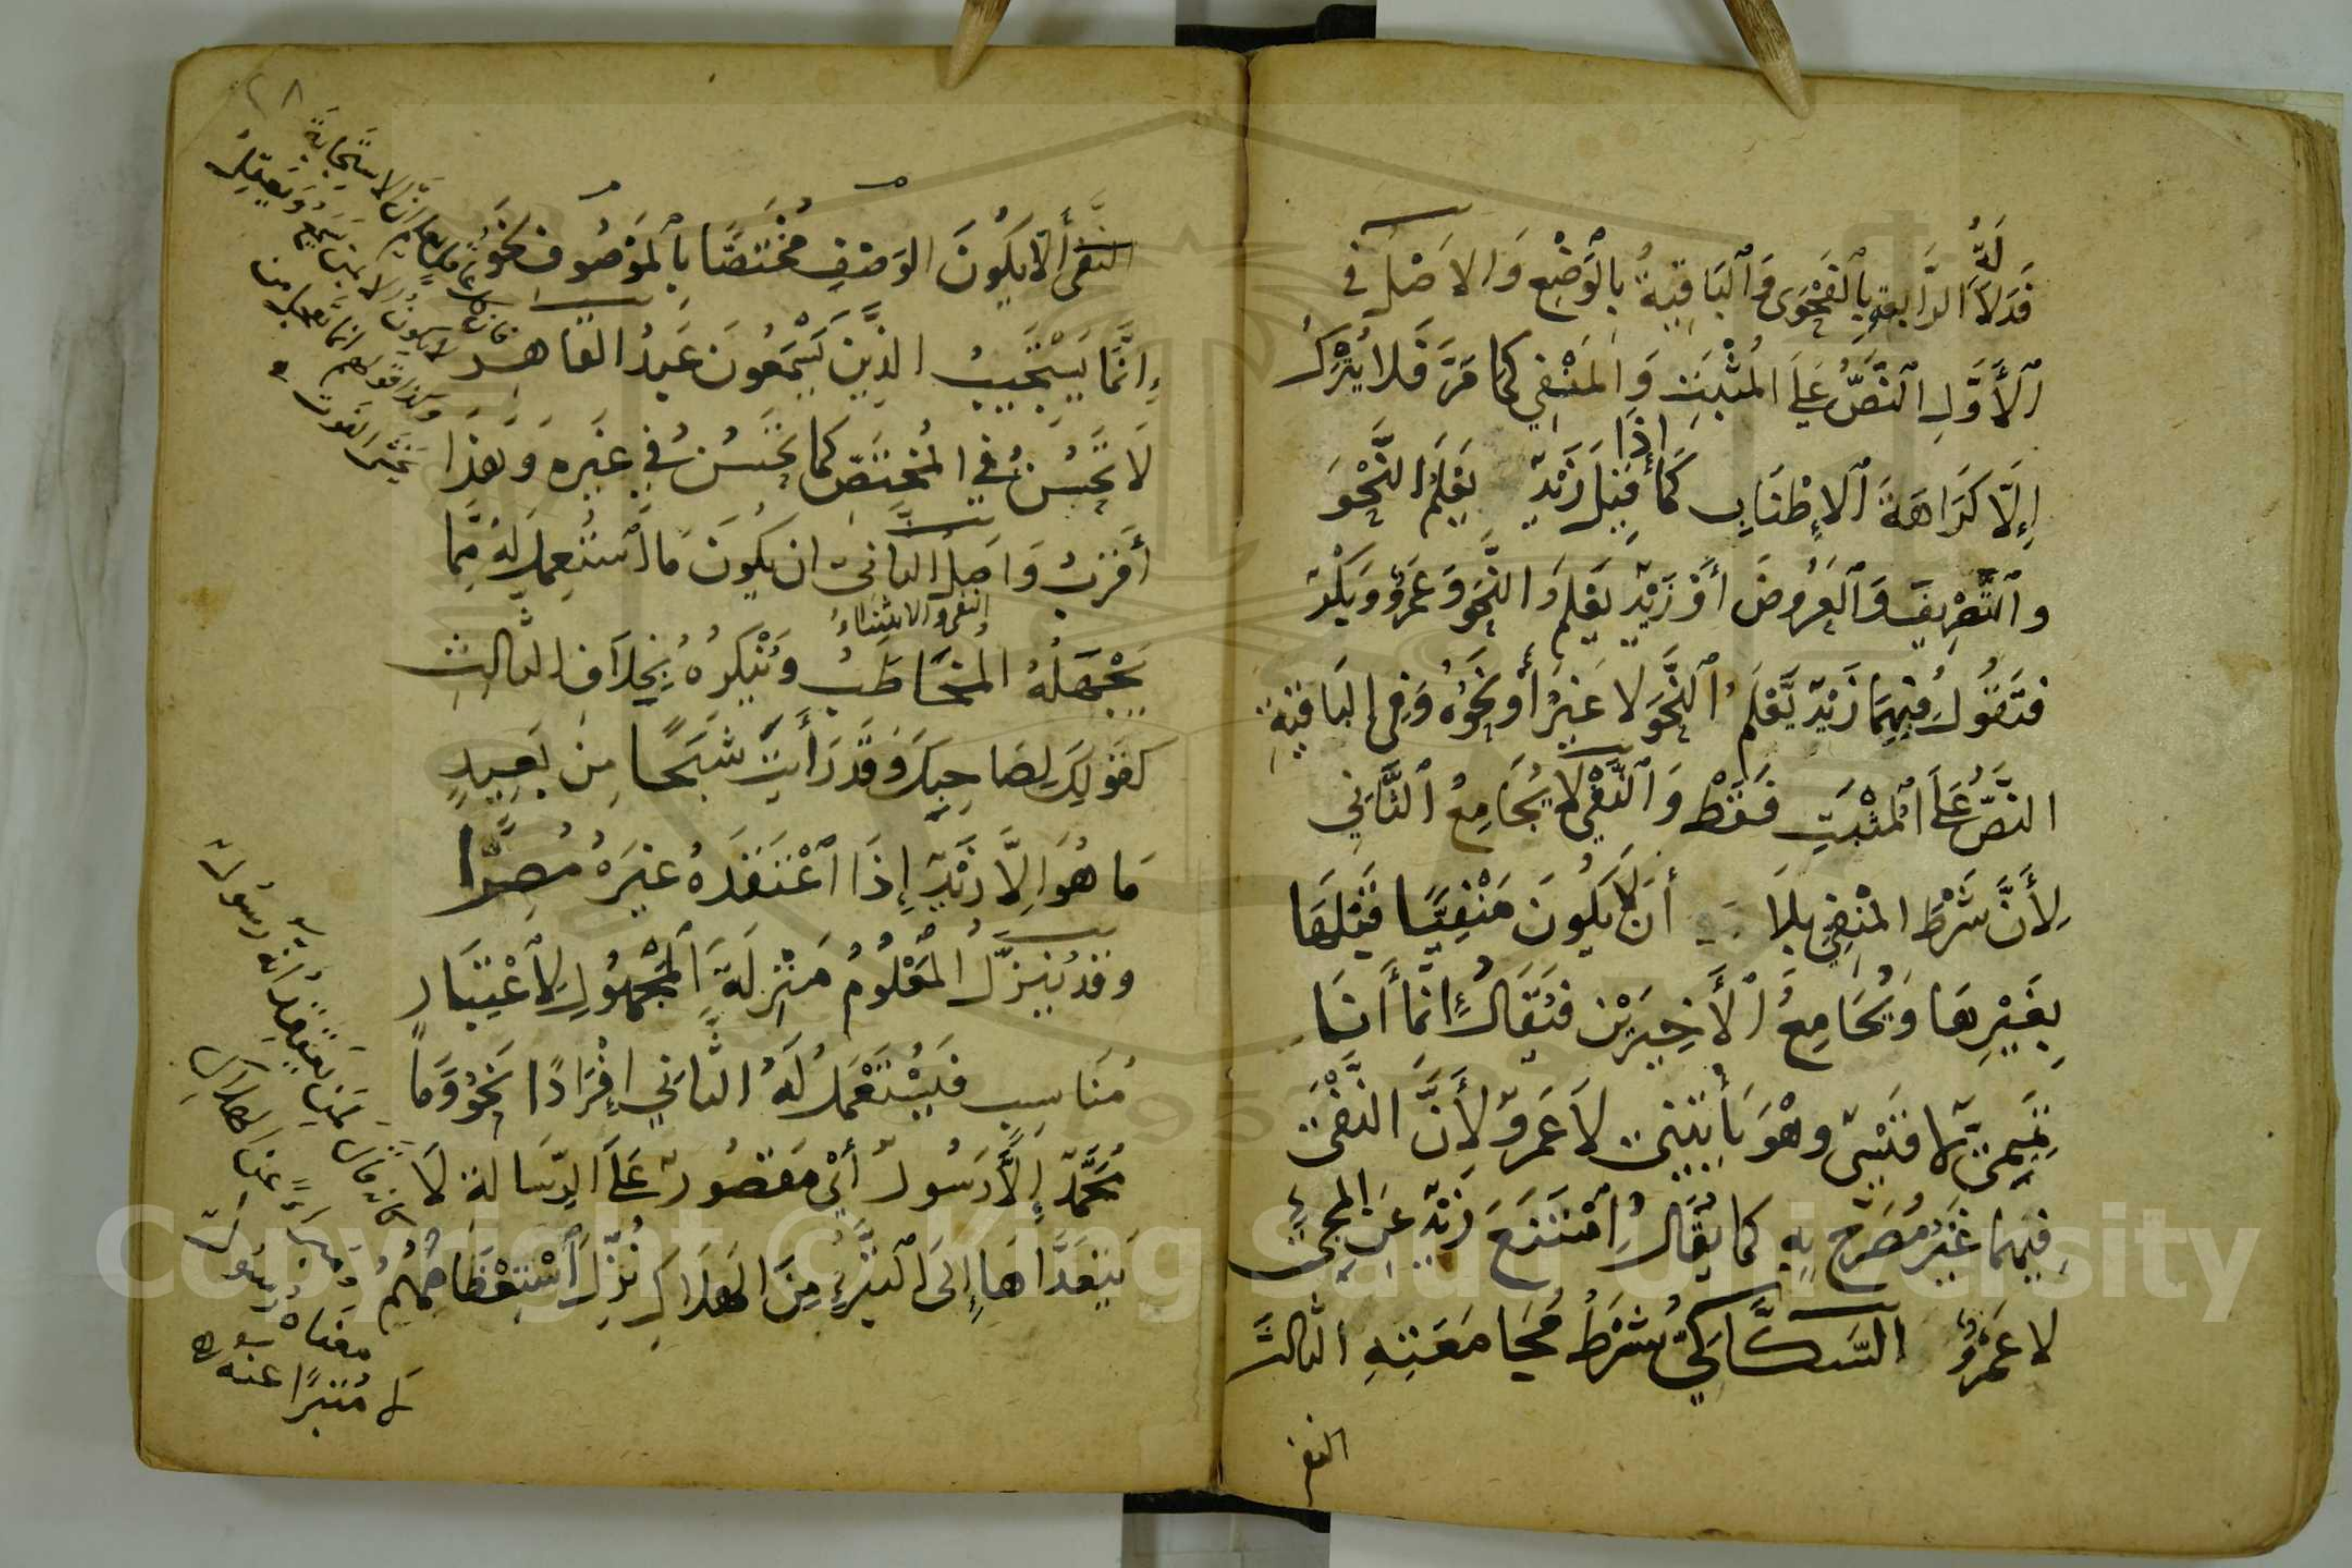 فَدَلَالَةُ الرَّابِعِ بِالْفَحْوَى وَالْبَاقِيَةُ بِالْوَضْعِ وَالاصْلُ فى
الْأَوَّلِ النَّصُّ عَلَى المُثْبَتِ وَالمَنْفِي كما مَرَّ فَلا يُتْرَكُ
إِلَّا كَرَاهَةَ الْإِطْنَابِ كَمَا إِذَا قِيلَ زَيْدٌ يَعْلَمُ النَّحْوَ
وَالتَّصْرِيفَ وَالْعَرُوضَ أَوْ زَيْدٌ يَعْلَمُ النَّحْوَ وَعَمْرٌو وَبَكْرٌ
فَتَقُولُ فِيهِمَا زَيْدٌ يَعْلَمُ النَّحْوَ لا غَيْرُ أَوْ نَحْوُهُ وَفِي الْبَاقِيَةِ
النَّصُّ عَلَى الْمُثْبَتِ فَقَطْ وَالنَّفْىُ لا يُجَامِعُ الثَّانِي
لِأَنَّ شَرْطَ المَنْفِيِّ بِلا أَنْ لَا يَكُونَ مَنْفِيًّا قَبْلَهَا
بِغَيْرِهَا وَيُجَامِعُ الْأَخِيرَيْنِ فَيُقَالُ إِنَّمَا أَنَا
تَمِيمِيٌّ لا قَيْسِيٌّ وهْوَ يَأْتِينِى لا عَمْرٌو لِأَنَّ النَّفْىَ
فِيهِمَا غَيْرُ مُصَرَّحٍ بِهِ كما يُقَالُ امْتَنَعَ زَيْدٌ عَنِ المَجِىءِ
لا عَمْرٌو السَّكَّاكِيُّ شَرْطُ مُجَامَعَتِهِ الثالثَ
النفى
٢٨
النفىَ أَلَّا يَكُونَ الوَصْفُ مُخْتَصًّا بِالْمَوْصُوفِ نَحْوُ
إِنَّمَا يَسْتَجِيبُ الَّذِينَ يَسْمَعُونَ عَبْدُ القَاهِرِ
لَا تَحْسُنُ فِي المُخْتَصِّ كَمَا تَحْسُنُ فِي غَيْرِهِ وَهَذَا
أَقْرَبُ وَاصْلُ الثانى ان يكُونَ مَا اسْتُعْمِلَ لَهُ مِمَّا
النفى والاستثناءُ
يَجْهَلُهُ المُخَاطَبُ وَيُنْكِرُهُ بِخِلَافِ الثالث
كقَوْلِكَ لِصَاحِبِكَ وَقَدْ رَأَيْتَ شَبَحًا مِنْ بَعِيدٍ
مَا هُوَ إِلَّا زَيْدٌ إِذَا اعْتَقَدَهُ غَيْرَهُ مُصِرًّا
وقَدْ يُنَزَّلُ الْمَعْلُومُ مَنْزِلَةَ الْمَجْهُولِ لِاعْتِبَارٍ
مُنَاسِبٍ فَيُسْتَعْمَلُ لَهُ الثانِي إِفْرَادًا نَحْوُ وَمَا
مُحَمَّدٌ إِلَّا رَسُولٌ أَيْ مَقْصُورٌ عَلَى الرِّسَالَةِ لَا
يَتَعَدَّاهَا إِلَى التَّبَرِّي مِنَ الهَلَاكِ نُزِّلَ اسْتِعْظَامُهُمْ
فان كل عاقل يعلم أن الاستجابة
لا يكون الا ممن يسمع ويعقل
وكذا قولهم انما يعجل من
يخشى الفوت
كانه قال لمن يعتقد أنه رسول
ومتبرئ عن الهلاك
معناه رسول
لا متبرًا عنه